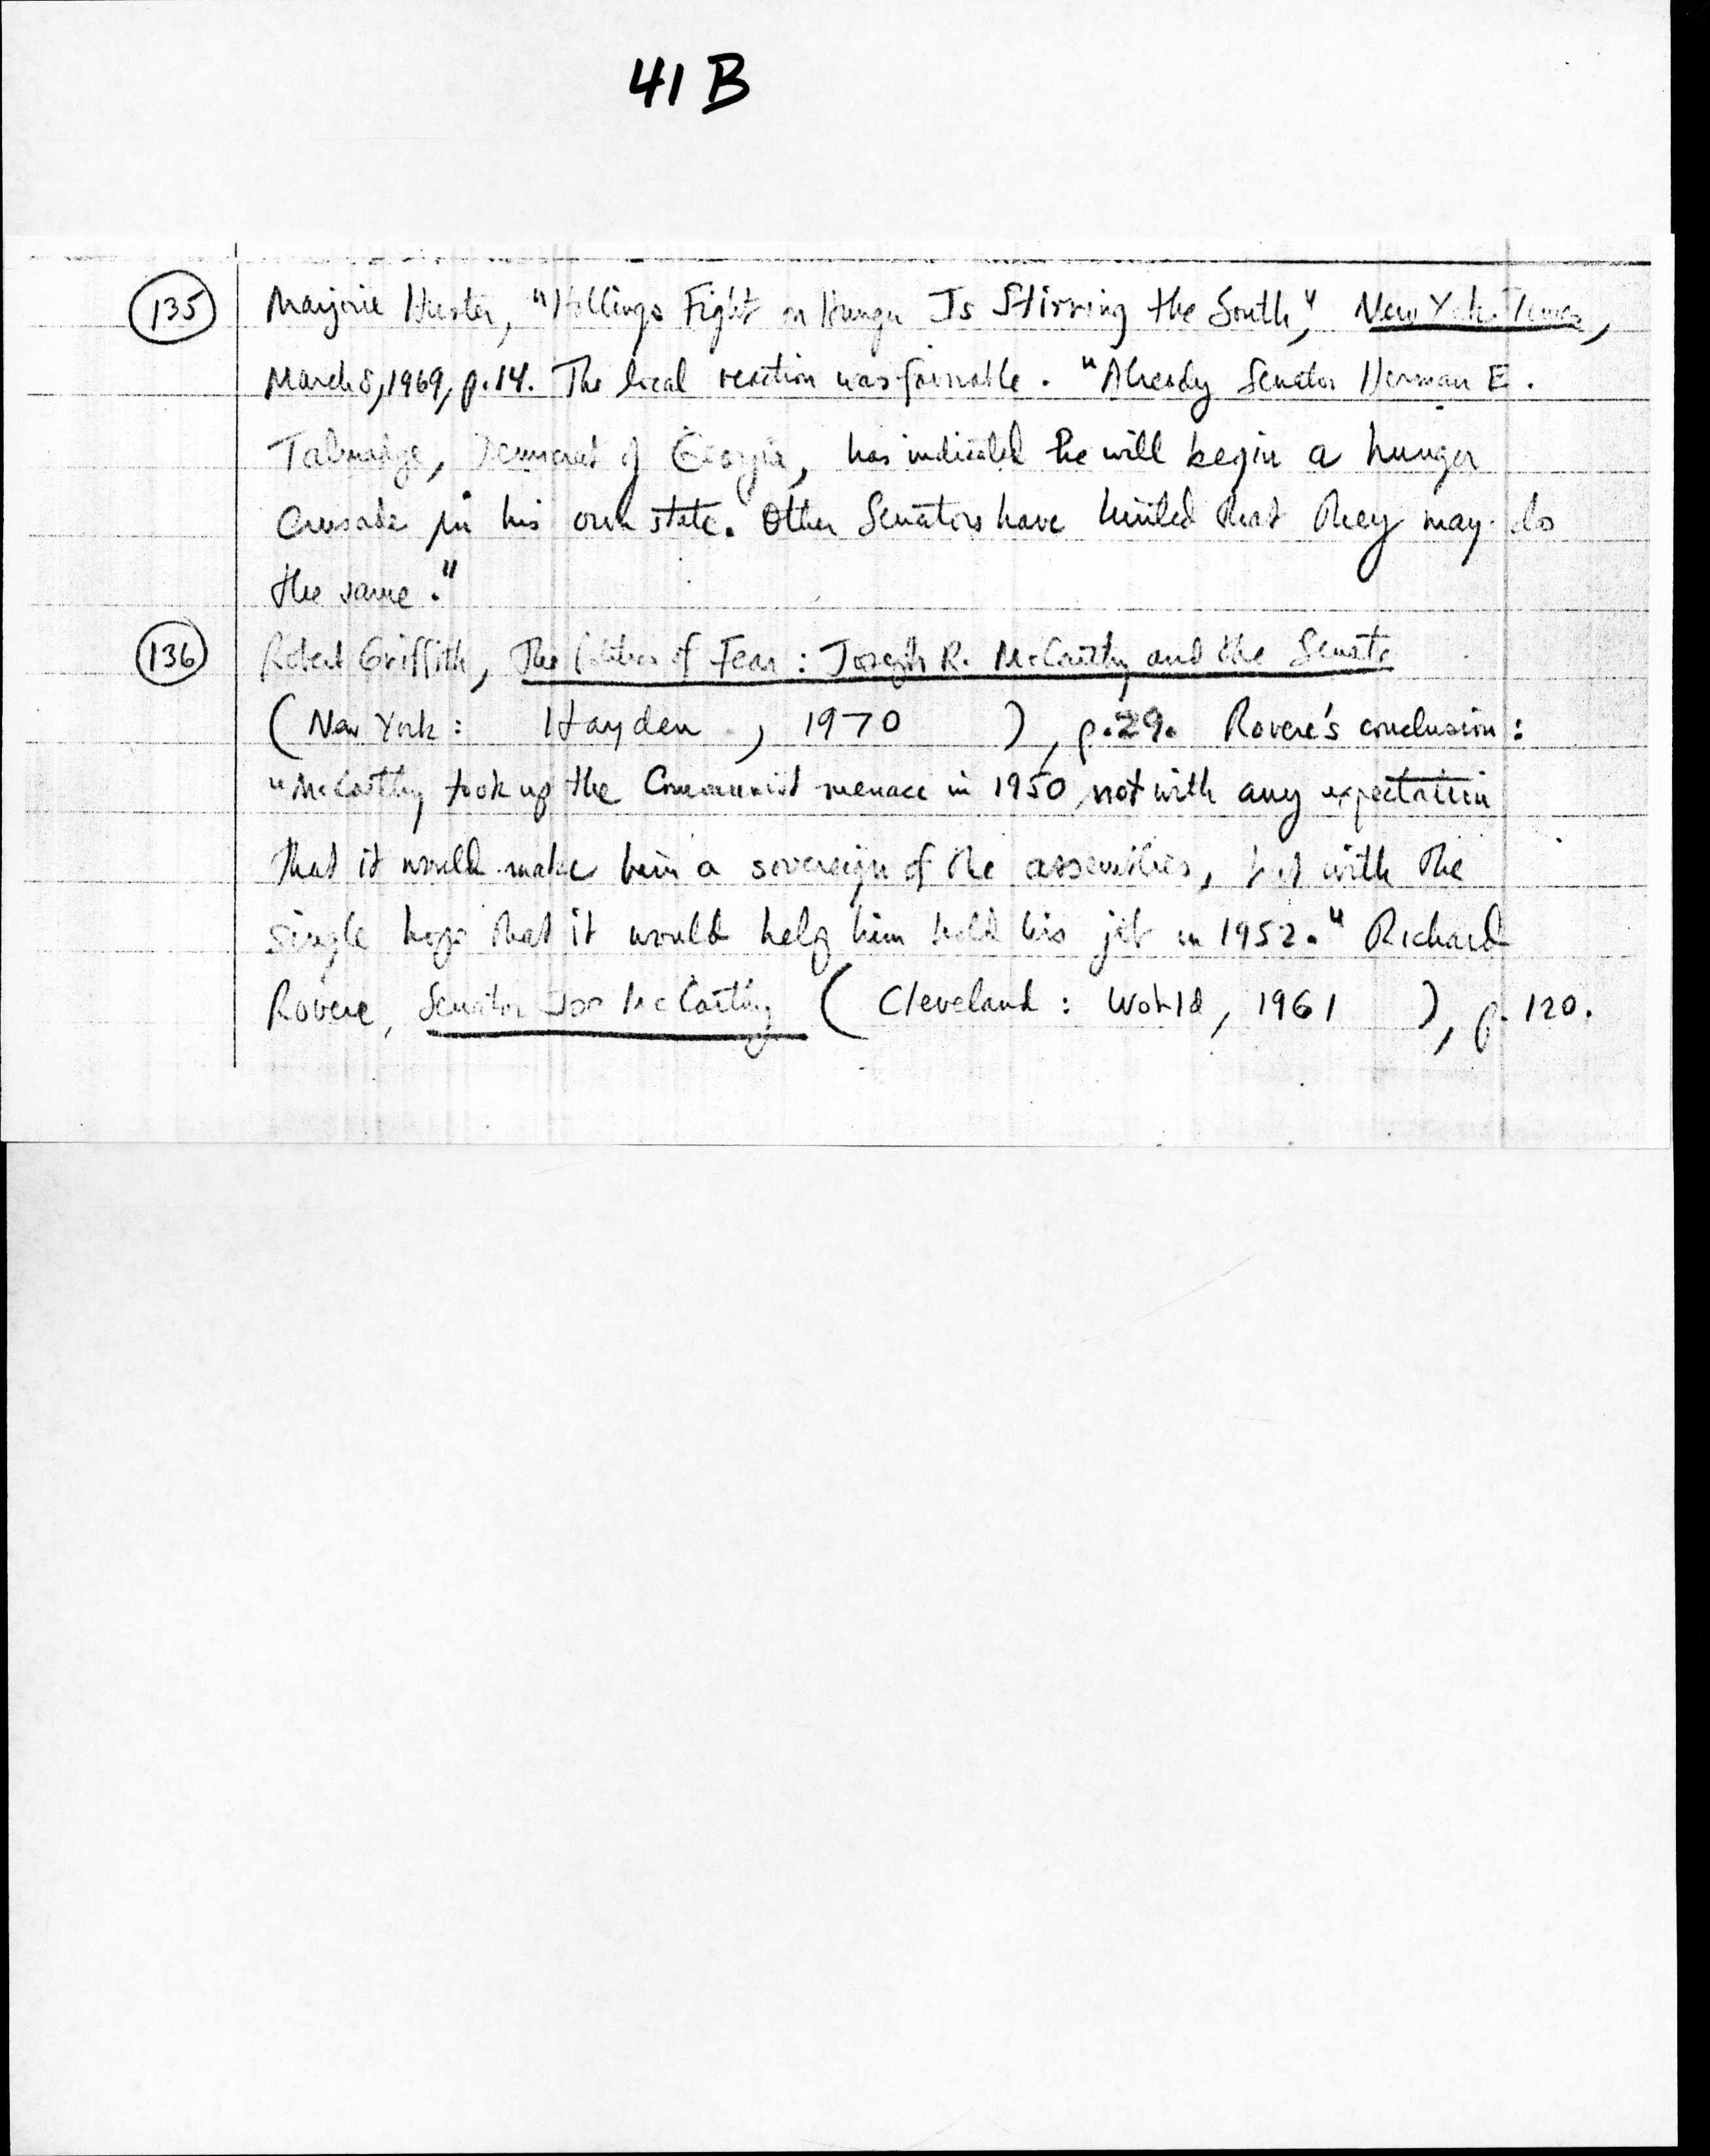 41 B
135 Marjorie Hunter, "Hollings Fight on Hunger Is Stirring the South," New York Times,
March 8, 1969, p.14. The local reaction was favorable. "Already Senator Herman E.
Talmadge, Democrat of Georgia, has indicated he will begin a hunger
crusade in his own state. Other Senators have hinted that they may do
the same."
136 Robert Griffith, The Politics of Fear: Joseph R. McCarthy and the Senate
(New York: Hayden, 1970), p.29. Rovere's conclusion:
"McCarthy took up the Communist menace in 1950, not with any expectation
that it would make him a sovereign of the assemblies, but with the
single hope that it would help him hold his job in 1952." Richard
Rovere, Senator Joe McCarthy (Cleveland: World, 1961), p. 120.